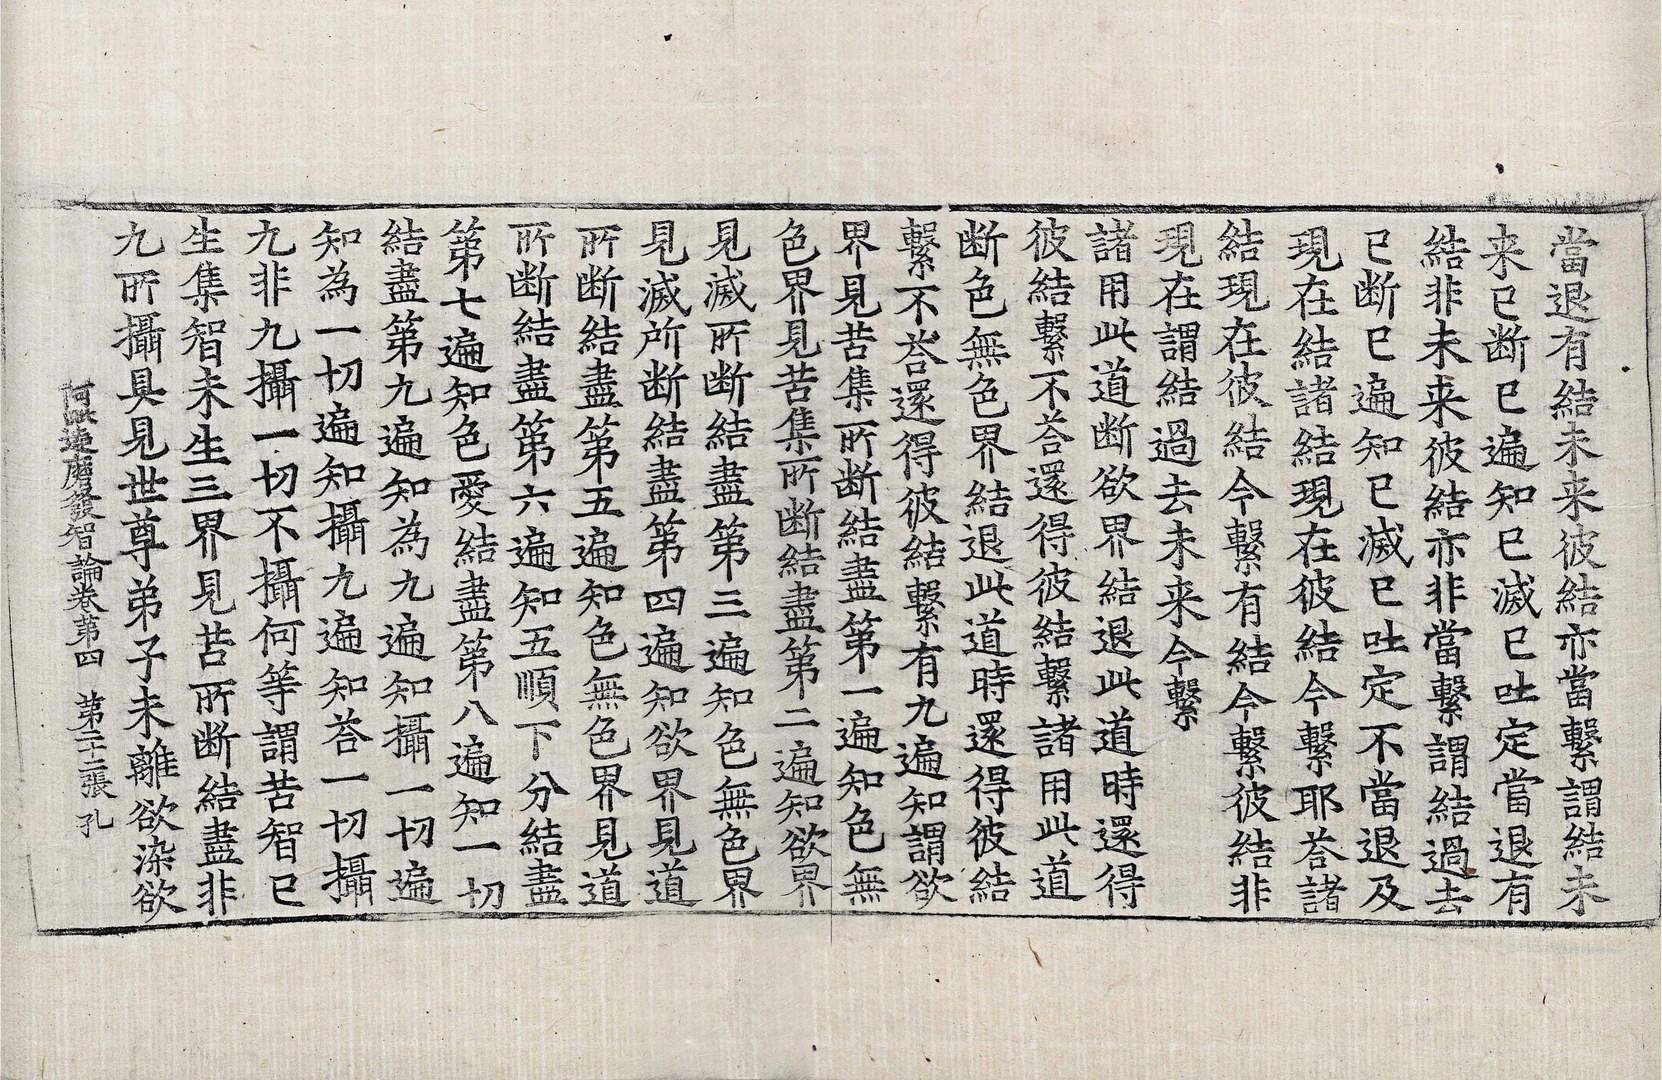 當退有結未来彼結亦當繫謂結未
来已断已遍知已滅已吐定當退有
結非未来彼結亦非當繫謂結過去
已断已遍知已滅已吐定不當退及
現在結諸結現在彼結今繫耶荅諸
結現在彼結今繫有結今繫彼結非
現在謂結過去未来今繫
諸用此道断欲界結退此道時還得
彼結繫不荅還得彼結繫諸用此道
断色無色界結退此道時還得彼結
繫不荅還得彼結繫有九遍知謂欲
界見苦集所断結盡第一遍知色無
色界見苦集所断結盡第二遍知欲界
見滅所断結盡第三遍知色無色界
見滅所断結盡第四遍知欲界見道
所断結盡第五遍知色無色界見道
所断結盡第六遍知五順下分結盡
第七遍知色愛結盡第八遍知一切
結盡第九遍知為九遍知攝一切遍
知為一切遍知攝九遍知荅一切攝
九非九攝一切不攝何等謂苦智已
生集智未生三界見苦所断結盡非
九所攝具見世尊弟子未離欲染欲
阿毗達磨發智論卷第四　第二十二張　孔